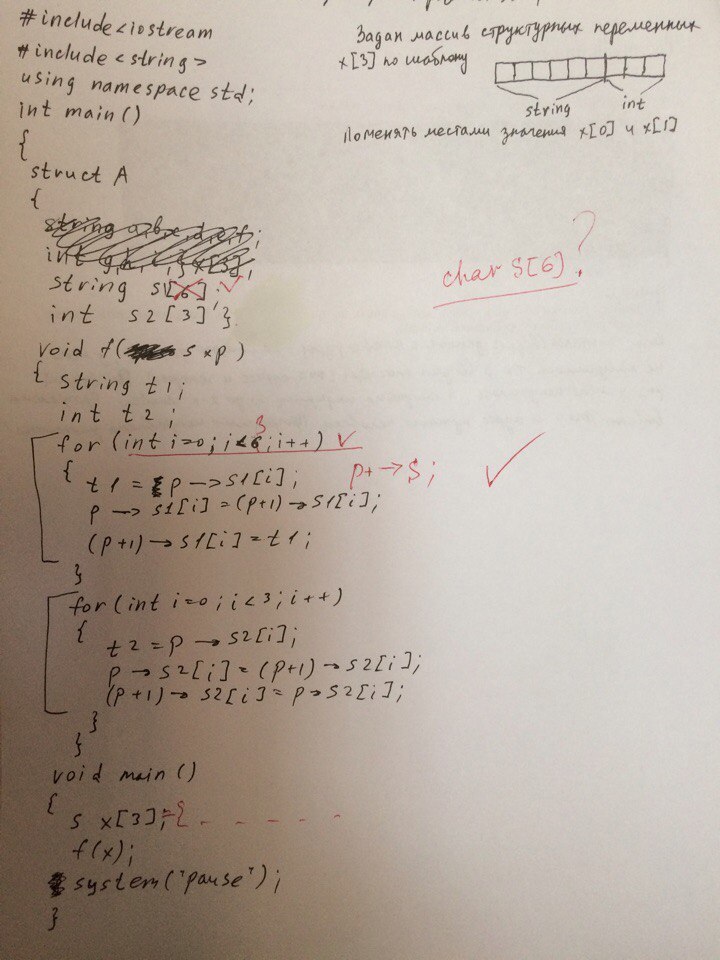 Задан массив структурных переменных
x[3] по шаблону
string int
Поменять местами значения x[0] и x[1]
#include<iostream
#include<string>
using namespace std;
int main()
{
struct A
{
string s1[6];
int s2[3]};
char S[6]?
void f( s *p)
{ string t1;
int t2;
3
for (int i=0; i<6; i++)
{ t1 = p->s1[i]; p+->S;
p->s1[i]=(p+1)->s1[i];
(p+1)->s1[i]=t1;
}
for(int i=0; i<3; i++)
{ t2=p->s2[i];
p->s2[i]=(p+1)->s2[i];
(p+1)->s2[i]=p->s2[i];
}
}
void main()
{
s x[3];={ - - - - -
f(x);
system("pause");
}